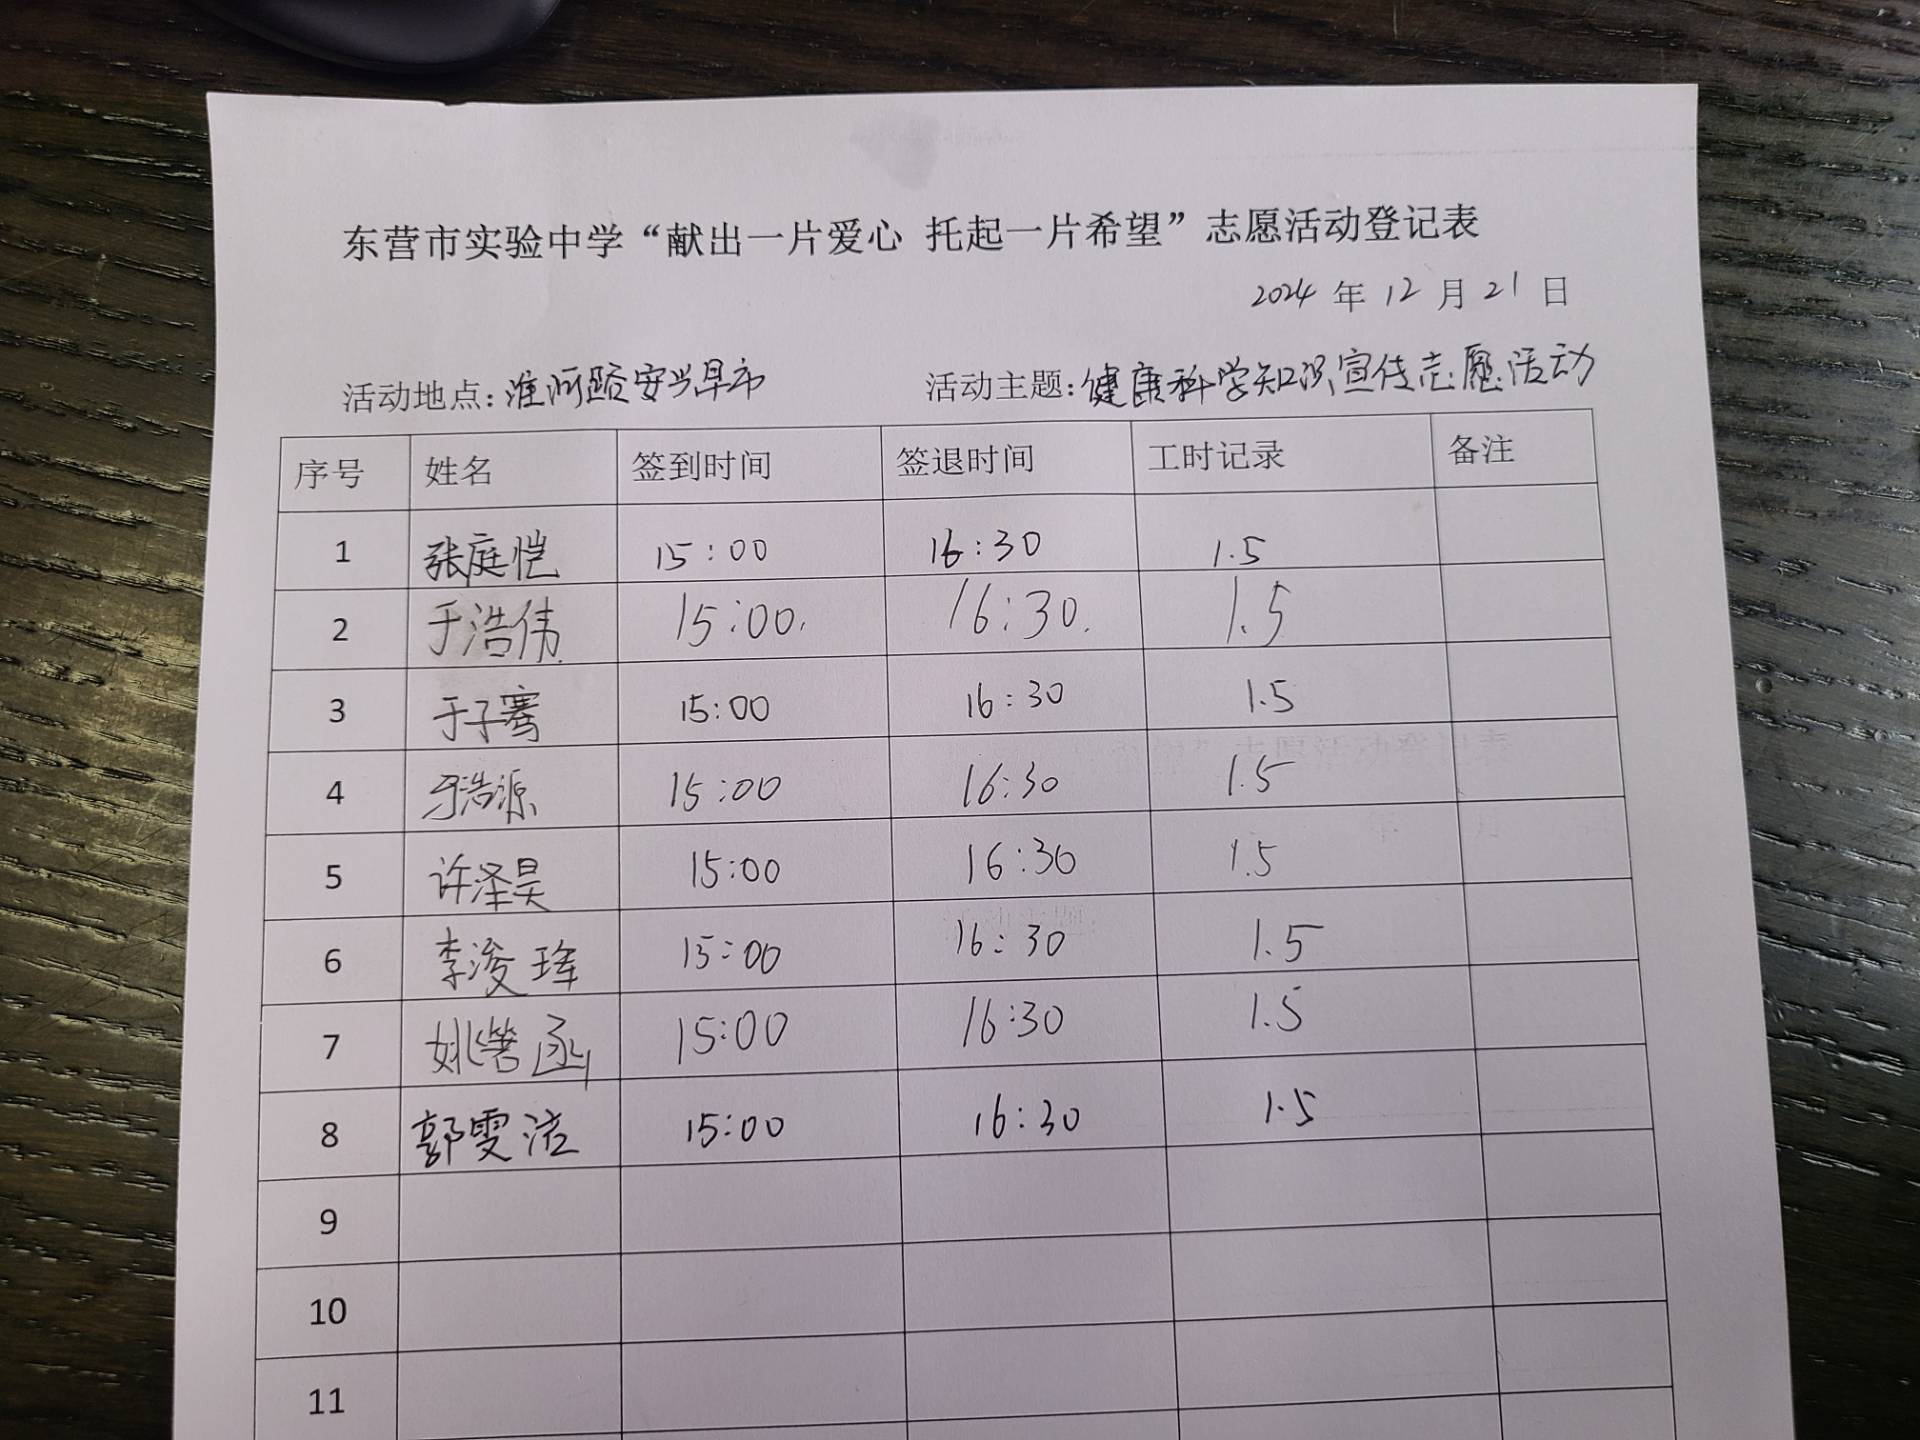 东营市实验中学“献出一片爱心 托起一片希望”志愿活动登记表
2024 年 12 月 21 日
活动地点:淮河路安兴早市 活动主题:健康科学知识宣传志愿活动
序号 姓名 签到时间 签退时间 工时记录 备注
1 张庭恺 15:00 16:30 1.5
2 于浩伟 15:00. 16:30. 1.5
3 于子骞 15:00 16:30 1.5
4 于浩源 15:00 16:30 1.5
5 许泽昊 15:00 16:30 1.5
6 李浚珲 15:00 16:30 1.5
7 姚 函 15:00 16:30 1.5
8 郭雯洁 15:00 16:30 1.5
9
10
11